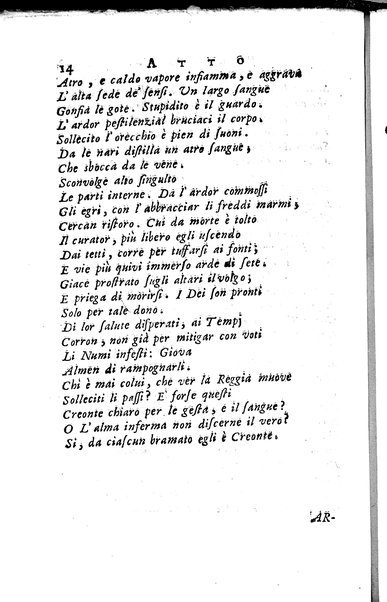 14 ATTO
Atro, e caldo vapore infiamma, e aggrava
L'alta sede de' sensi. Un largo sangue
Gonfia le gote. Stupidito è il guardo.
L'ardor pestilenzial bruciaci il corpo.
Sollecito l'orecchio è pien di suoni.
Da le nari distilla un atro sangue,
Che sbocca da le vene.
Sconvolge alto singulto
Le parti interne. Da l'ardor commossi
Gli egri, con l'abbracciar li freddi marmi,
Cercan ristoro. Cui da morte è tolto
Il curator, più libero egli uscendo
Dai tetti, corre per tuffarsi ai fonti;
E vie più quivi immerso arde di sete.
Giace prostrato sugli altari il volgo;
E priega di morirsi. I Dei son pronti
Solo per tale dono.
Di lor salute disperati, ai Tempj
Corron, non già per mitigar con voti
Li Numi infesti: Giova
Almen di rampognarli.
Chi è mai colui, che ver la Reggia muove
Solleciti li passi? E' forse questi
Creonte chiaro per le gesta, e il sangue?
O L'alma inferma non discerne il vero?
Si, da ciascun bramato egli è Creonte.
AR-